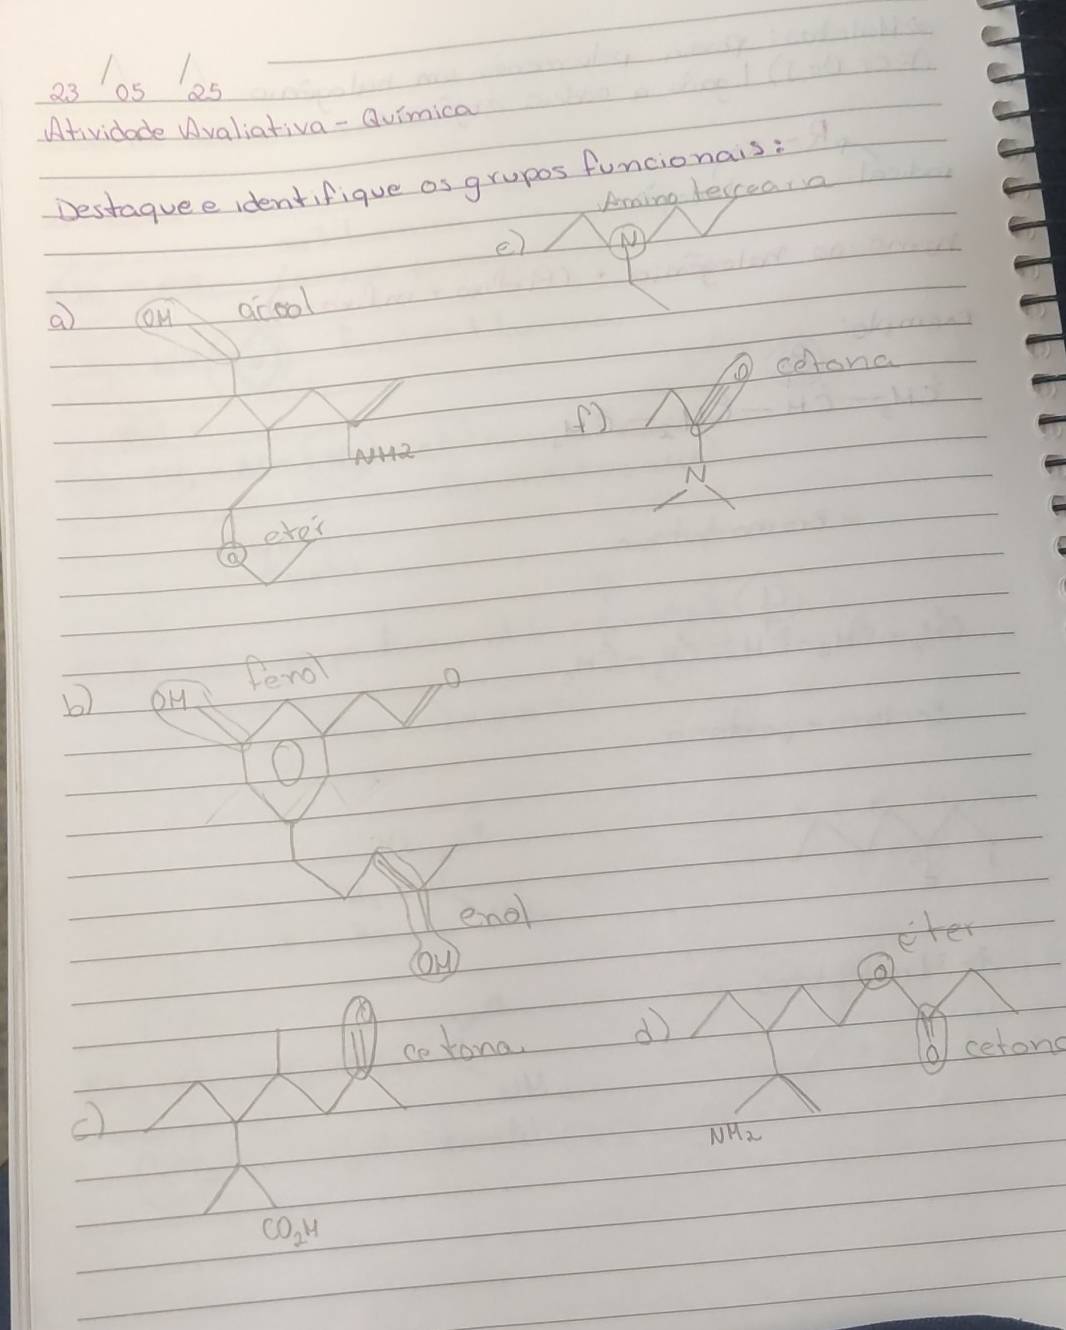 23/05/25
Atividade Avaliativa - Química
Destaque e identifique os grupos funcionais:
e) N Amina terceária
a) OH álcool
NH2
O eter
f) O cetona
N
b) OH fenol O
enol
OH
c) O cetona
CO2H
d) O éter
O cetona
NH2